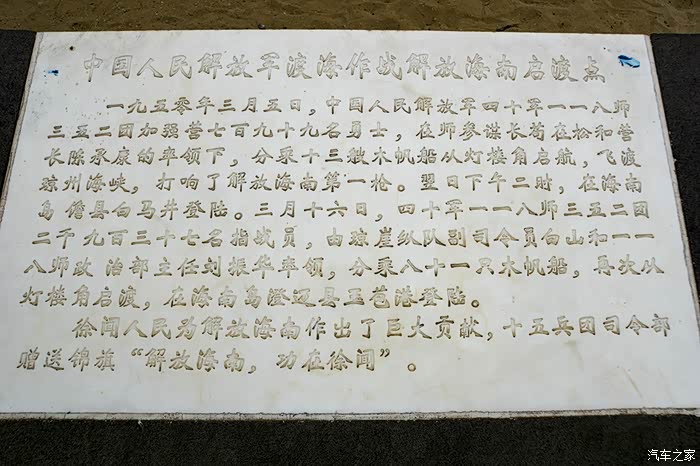 中国人民解放军渡海作战解放海南启渡点
一九五零年三月五日，中国人民解放军四十军一一八师
三五二团加强营七百九十九名勇士，在师参谋长苟在松和营
长陈承康的率领下，分乘十三艘木帆船从灯楼角启航，飞渡
琼州海峡，打响了解放海南第一枪。翌日下午二时，在海南
岛儋县白马井登陆。三月十六日，四十军一一八师三五二团
二千九百三十七名指战员，由琼崖纵队副司令员白山和一一
八师政治部主任刘振华率领，分乘八十一只木帆船，再次从
灯楼角启渡，在海南岛澄迈县玉苞港登陆。
徐闻人民为解放海南作出了巨大贡献，十五兵团司令部
赠送锦旗“解放海南，功在徐闻”。
汽车之家